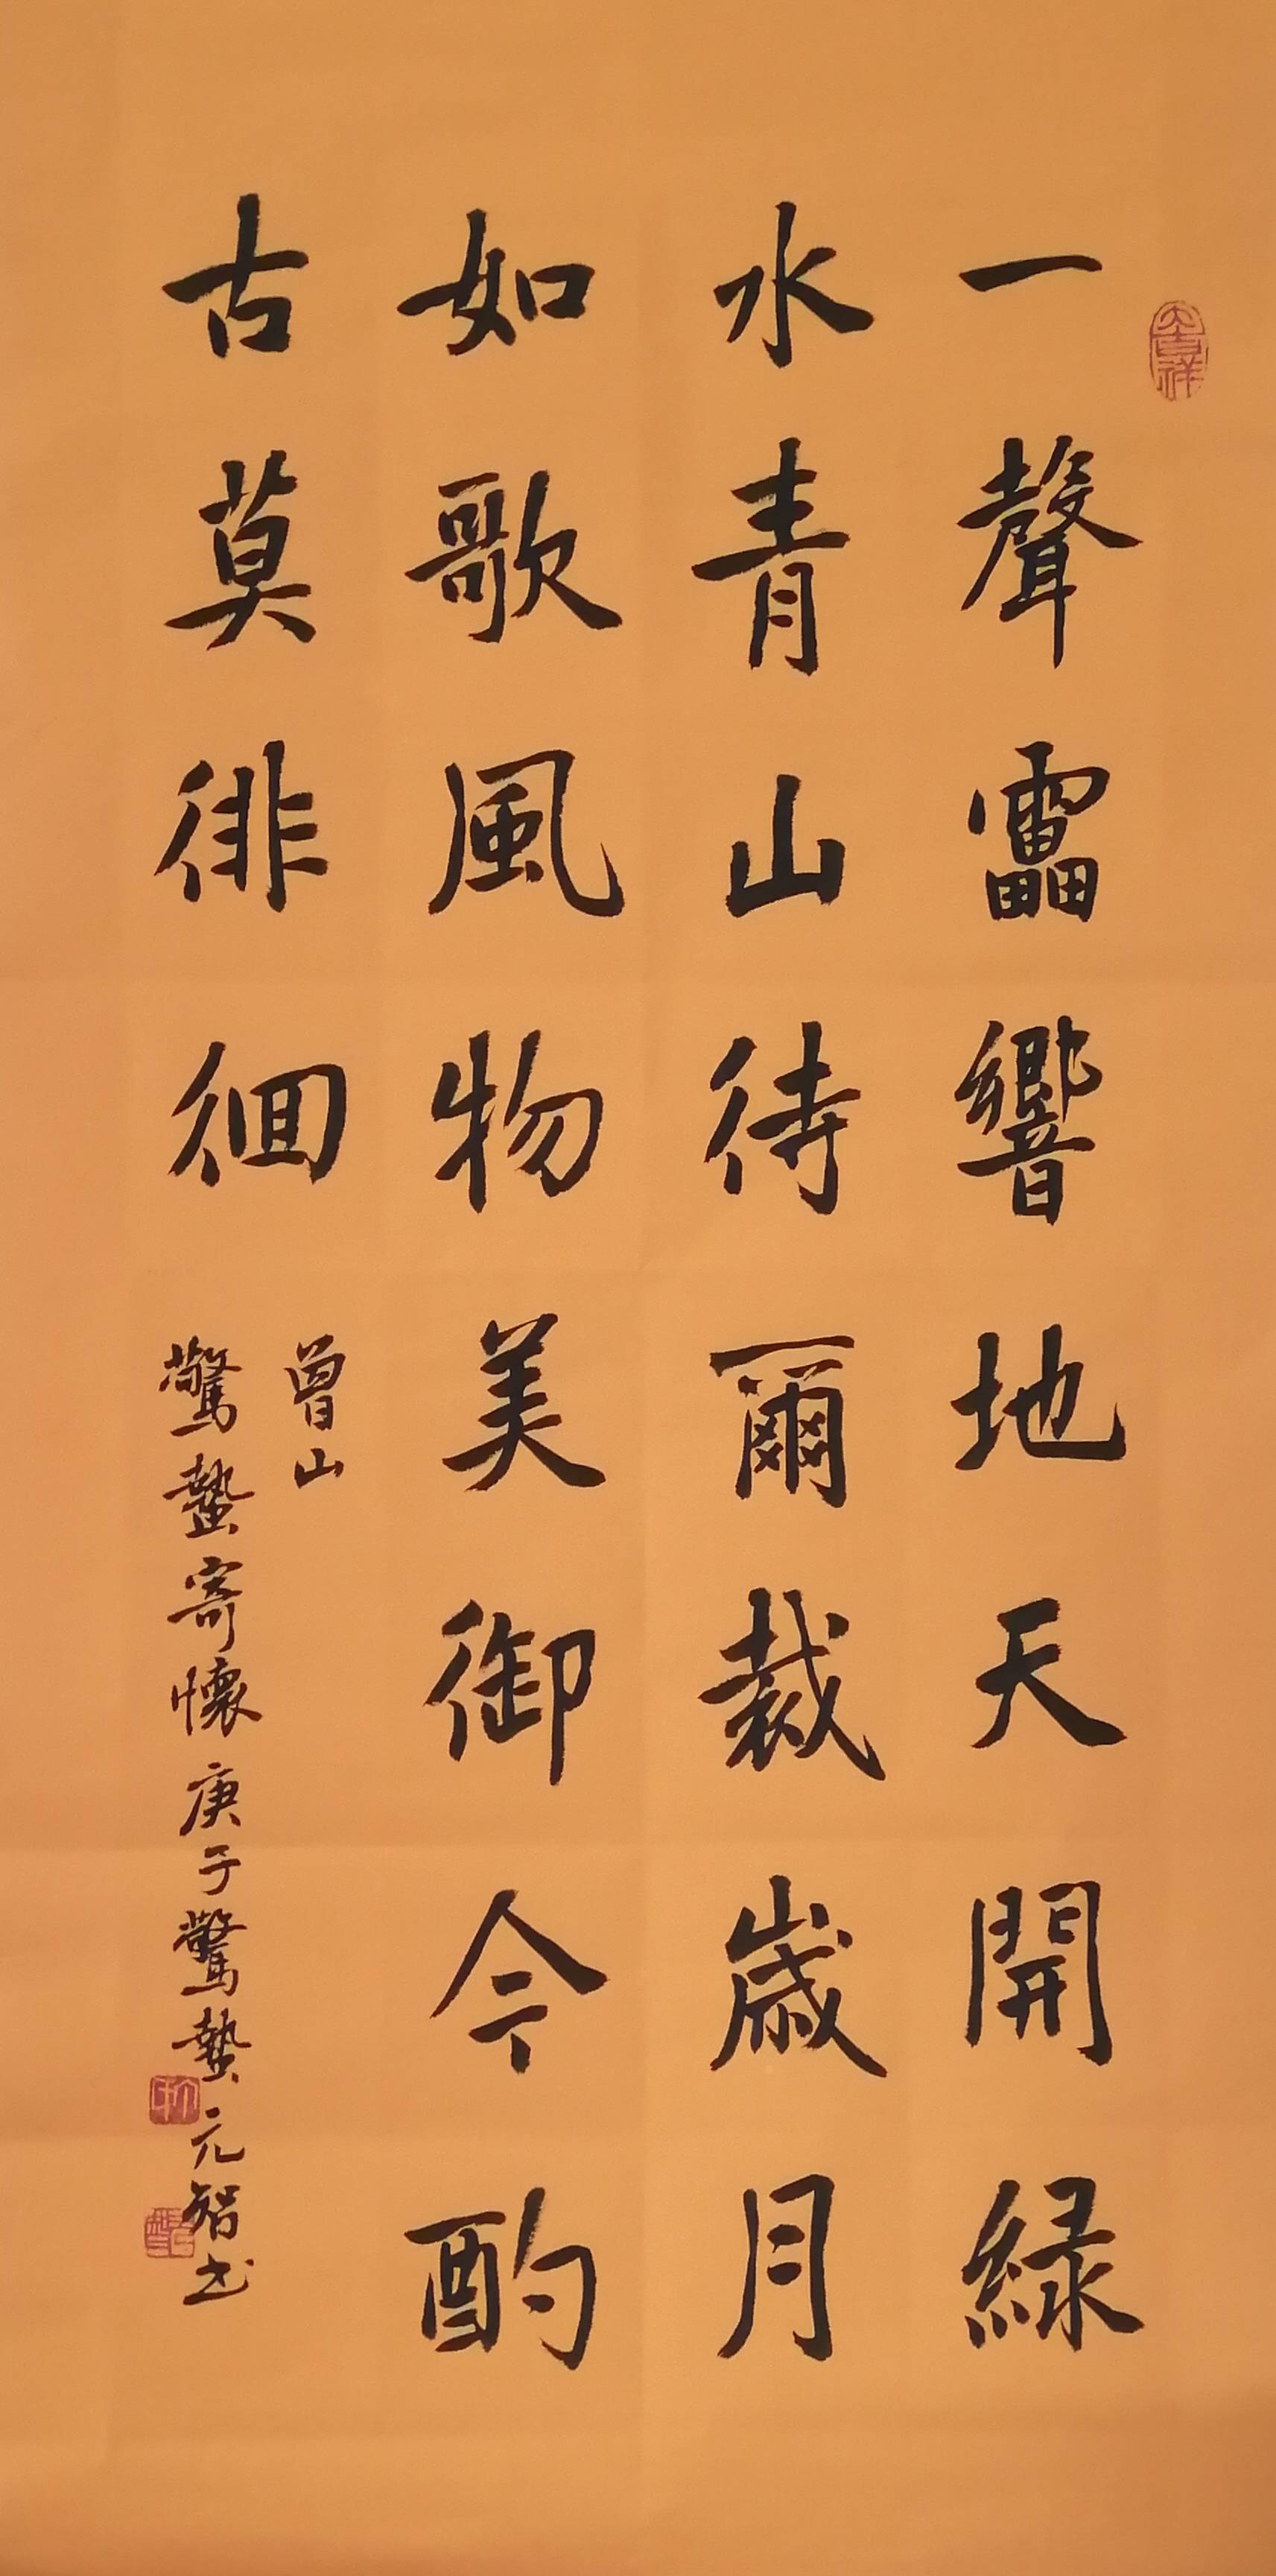 一聲靁響地天開綠
水青山待爾裁歲月
如歌風物美御今酌
古莫徘徊
曾山
驚蟄寄懷庚子驚蟄元智书
大吉祥